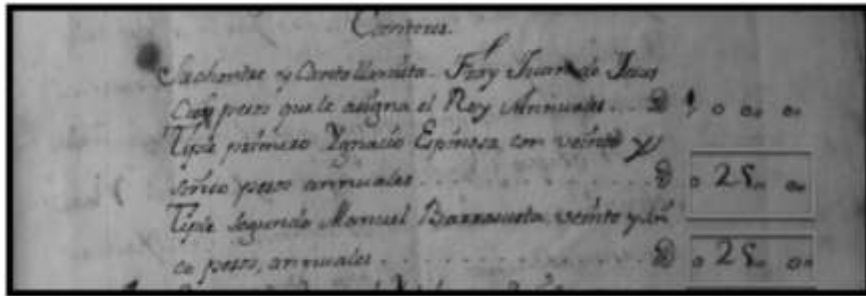 Cantores.
Sochantre y Canto llanista. Fray Juan de Jesus
Cien pesos que le asigna el Rey Annuales...
Tiple primero Ygnacio Espinosa con veinte y
sinco pesos annuales 025„ 0„
Tiple segundo Manuel Barrasueta veinte y sin
co pesos, annuales 025„ 0„